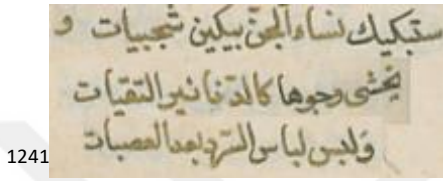 ستبكيك نساء الجن يبكين شجيبات و
يخشى وجوها كالدنانير التقيات
1241 ولبس لباس السرد بعد العصبات